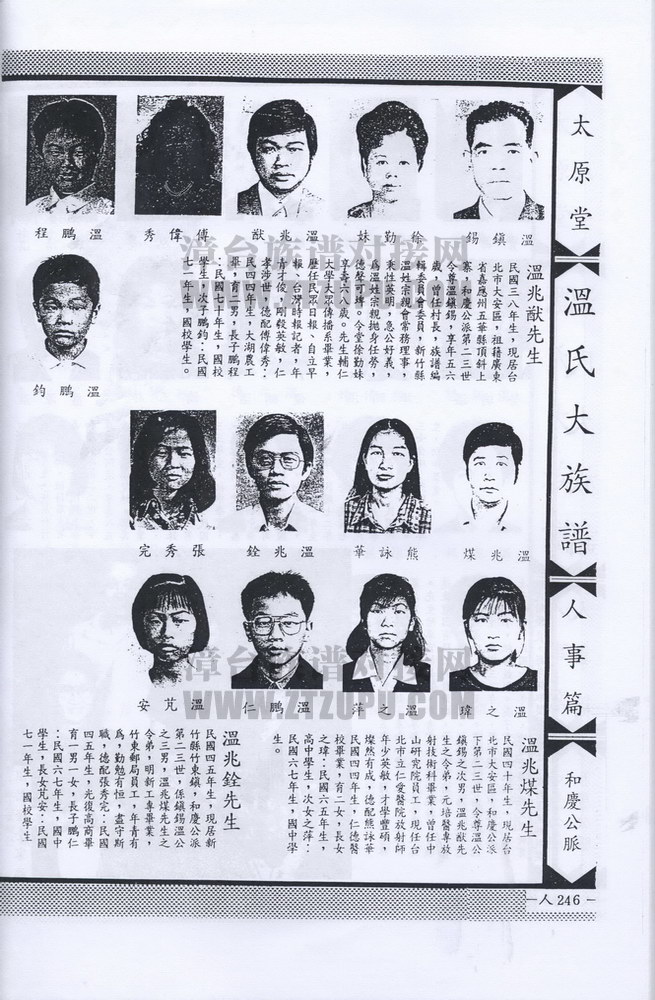 太原堂
溫氏大族譜
人事篇
和慶公脈
溫鎮錫
徐勤妹
溫兆猷
傅偉秀
溫鵬程
溫鵬鈞
溫兆猷先生
民國三八年生，現居台
北市大安區，祖籍廣東
省嘉應州五華縣頂斜上
寨，和慶公派第二三世
令尊溫鎮錫，享年五六
歲，曾任村長，族譜編
輯委員會委員，新竹縣
溫姓宗親會常務理事，
秉性英明，急公好義，
為溫姓宗親拋身任勞，
德聲可擽。令堂徐勤妹
享壽六八歲。先生輔仁
大學大眾傳播系畢業，
歷任民眾日報、自立早
報、台灣時報記者，年
青才俊，剛毅英敏，仁
孝涉世，德配傅偉秀：
民四四年生，大湖農工
畢，育二男，長子鵬程
：民國七十年生，國校
學生，次子鵬鈞：民國
七一年生，國校學生。
溫兆煤
熊詠華
溫兆銓
張秀完
溫之瑋
溫之萍
溫鵬仁
溫芃安
溫兆煤先生
民國四十年生，現居台
北市大安區，和慶公派
下第二三世，令尊溫公
鎮錫之次男，溫兆猷先
生之令弟，元培醫專放
射技術科畢業，曾任中
山研究院員工，現任台
北市立仁愛醫院放射師
年少英敏，才學豐碩，
燦然有成，德配熊詠華
民國四四年生，仁德醫
校畢業，育二女，長女
之瑋：民國六五年生，
高中學生，次女之萍：
民國六七年生，國中學
生。
溫兆銓先生
民國四五年生，現居新
竹縣竹東鎮，和慶公派
第二三世，係鎮錫溫公
之三男，溫兆煤先生之
令弟，明新工專畢業，
竹東郵局員工，年青有
為，勤勉有恒，盡守斯
職，德配張秀完：民國
四五年生，光復高商畢
育一男一女，長子鵬仁
：民國六七年生，國中
學生，長女芃安：民國
七一年生，國校學生
—人 246 —
漳台族谱对接网
WWW.ZTZUPU.COM
漳台族谱对接网
WWW.ZTZUPU.COM